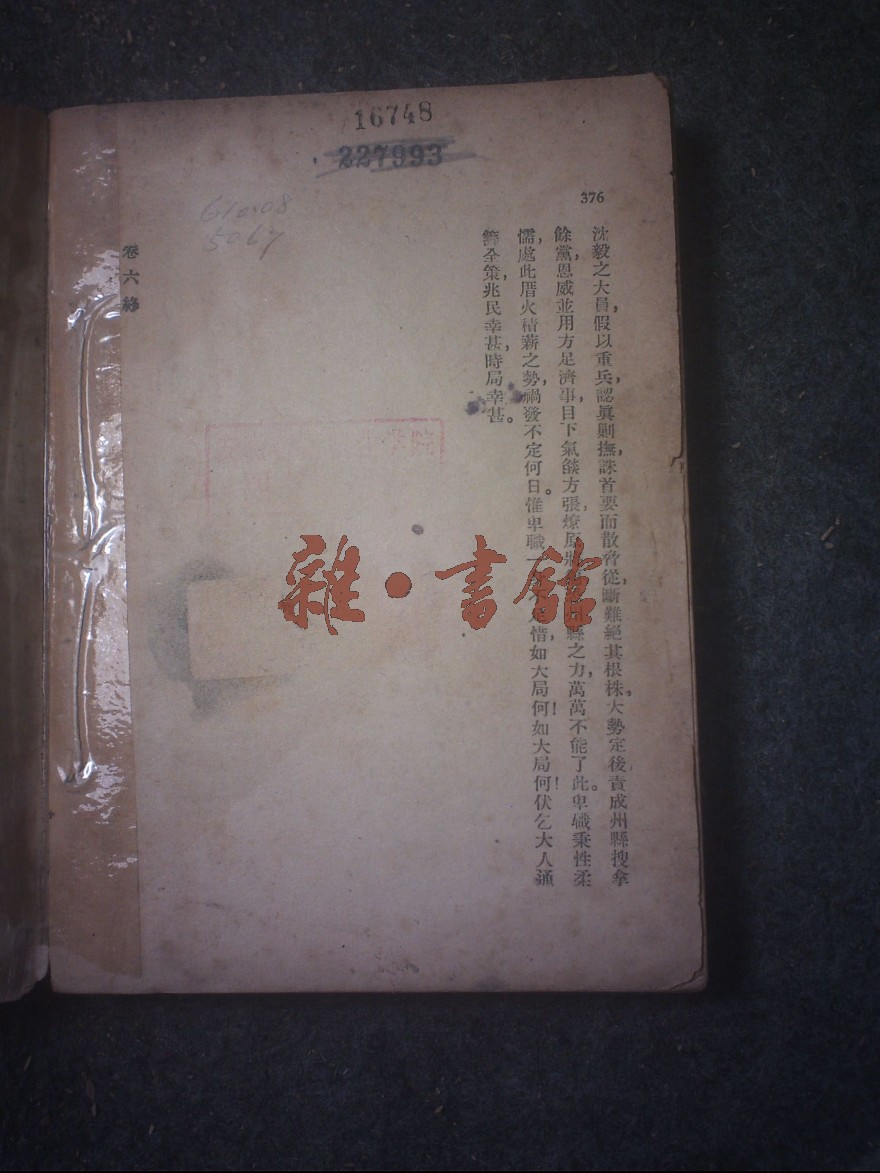 16748
227993
376
沈毅之大員，假以重兵，認眞剿撫，誅首要而散脅從，斷難絕其根株。大勢定後，責成州縣搜拿
餘黨，恩威並用，方足濟事，目下氣燄方張，燎原 縣之力，萬萬不能了此。卑職秉性柔
懦，處此厝火積薪之勢，禍發不定何日。惟卑職一 惜，如大局何！如大局何！伏乞大人通
籌全策，兆民幸甚，時局幸甚。
卷六終
G10.08
5067
雜·書館